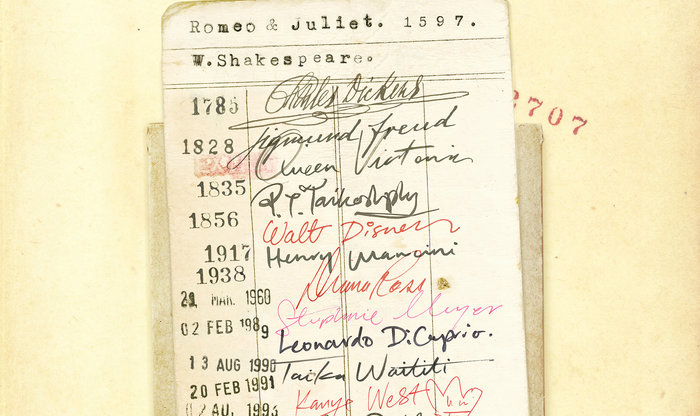 Romeo & Juliet. 1597.
W.Shakespeare.
2707
1785 Charles Dickens
1828 Sigmund Freud
Queen Victoria
1835 P.T. Taikostiphy
1856 Walt Disney
1917 Henry Mancini
1938 Diana Ross
21 MAR. 1960 Stephanie Meyer
02 FEB 1989 Leonardo DiCaprio.
13 AUG 1990 Taika Waititi
20 FEB 1991 Kanye West
02 AUG 1993